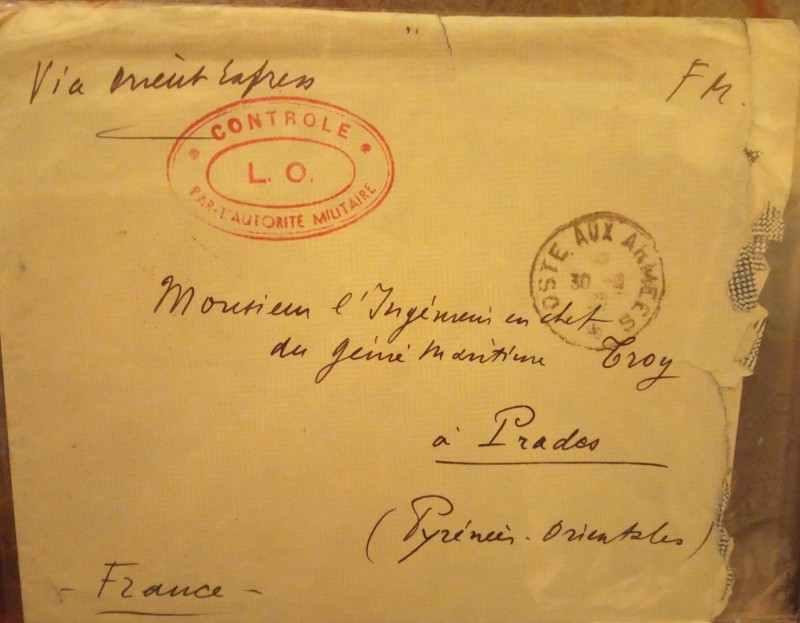 Via Orient Express
F M.
CONTROLE
L. O.
PAR L'AUTORITÉ MILITAIRE
POSTE AUX ARMEES
30
Monsieur l'Ingénieur en chef
du génie maritime Troy
à Prades
(Pyrénées-Orientales)
- France -